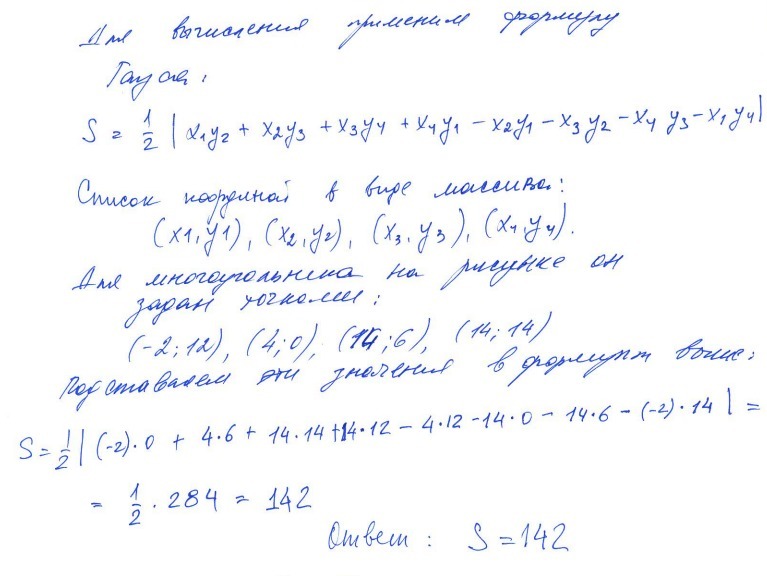 Для вычисления применим формулу
Гаусса:
S = 1/2 | x₁y₂ + x₂y₃ + x₃y₄ + x₄y₁ − x₂y₁ − x₃y₂ − x₄ y₃ − x₁y₄|
Список координат в виде массива:
(x1,y1), (x₂,y₂), (x₃,y₃), (x₄,y₄).
Для многоугольника на рисунке он
задан точками:
(-2;12), (4;0), (14;6), (14;14)
Подставляем эти значения в формулу выше:
S = 1/2 | (-2)·0 + 4·6 + 14·14 + 14·12 − 4·12 − 14·0 − 14·6 − (-2)·14 | =
= 1/2 · 284 = 142
Ответ: S = 142